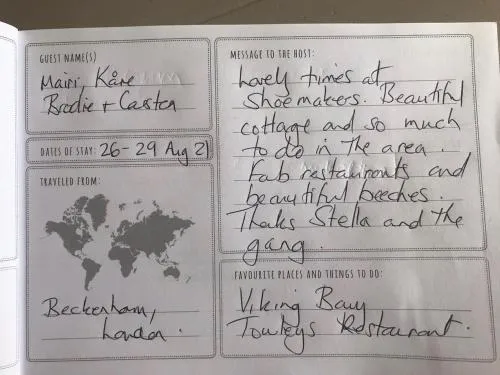 GUEST NAME(S)
Mairi, Kåre
Brodie + Carsten
DATES OF STAY: 26-29 Aug 21
TRAVELED FROM:
Beckenham,
London.
MESSAGE TO THE HOST:
Lovely times at
Shoemakers. Beautiful
cottage and so much
to do in the area.
Fab restaurants and
beautiful beeches.
Thaks Stella and the
gang.
FAVOURITE PLACES AND THINGS TO DO:
Viking Bay
Restaurant.